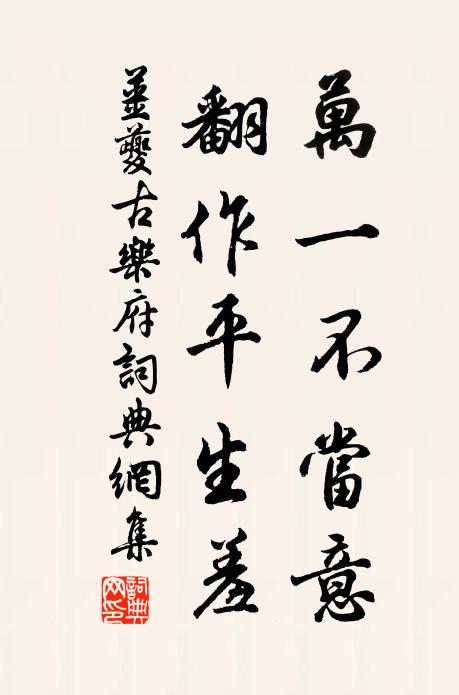 萬一不當意
翻作平生羞
姜夔古樂府詞典網集
詞典网印